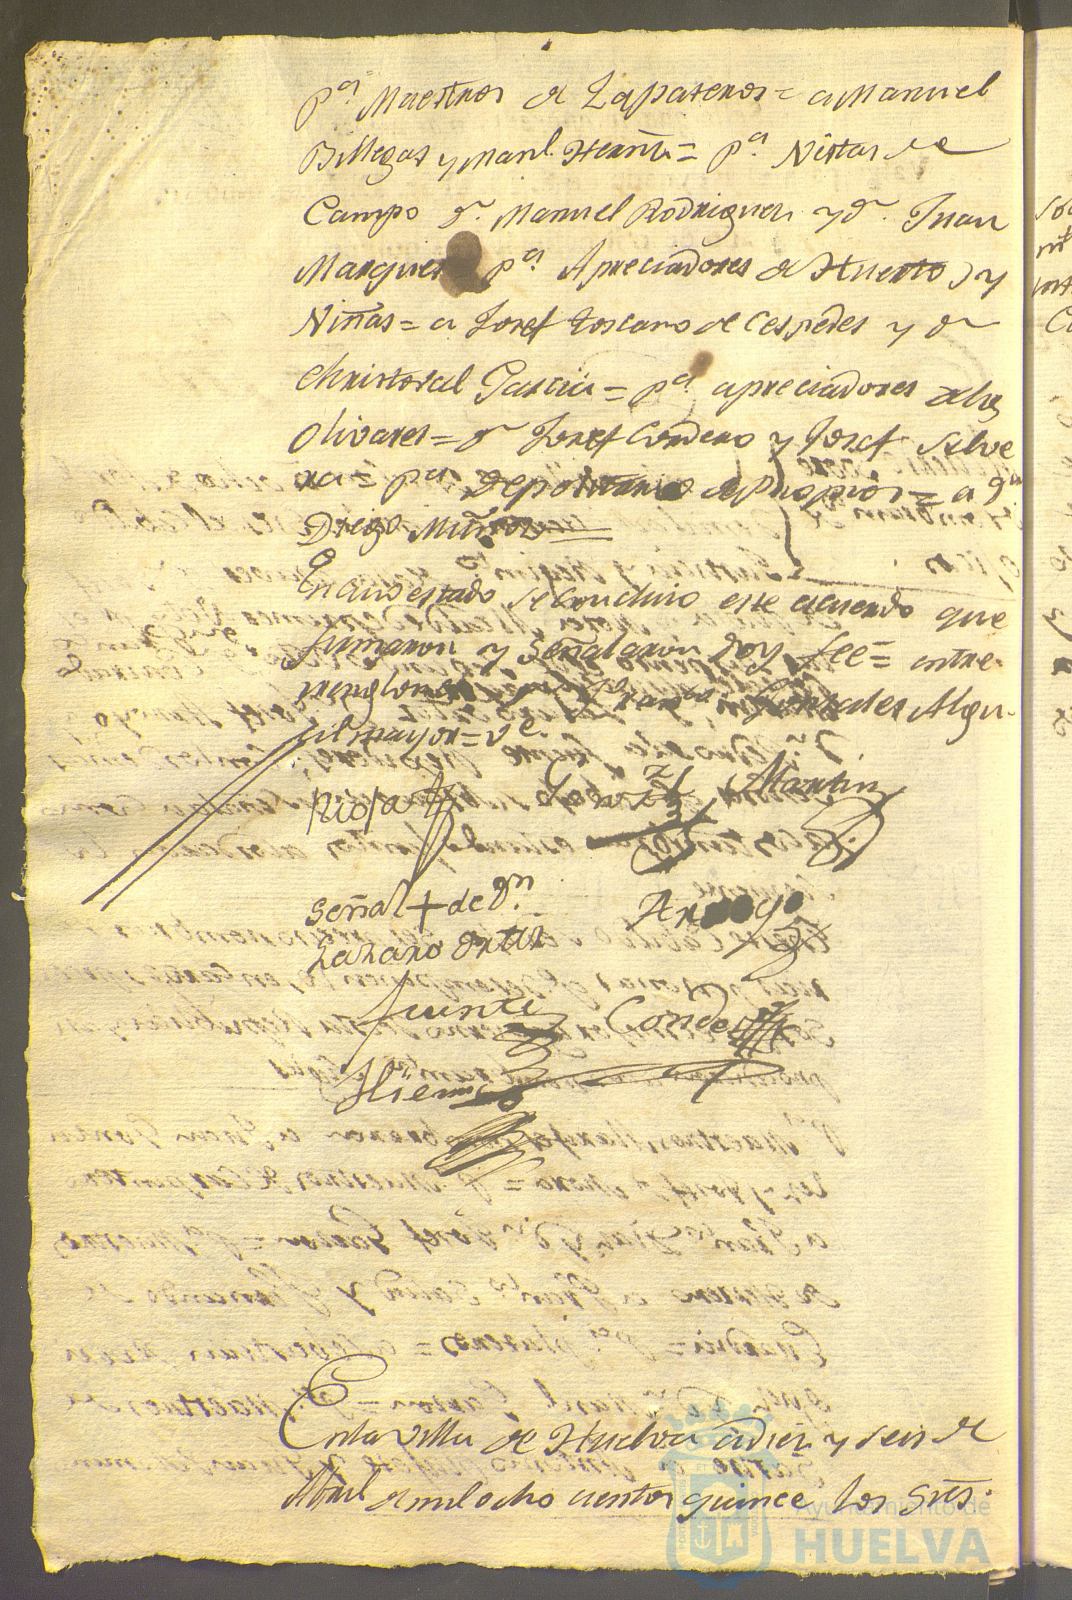 pa. Maestros de Zapateros = a Manuel
Billegas y Manl. Hernz. = pa. Vistas de
Campo Dn. Manuel Rodriguez y Dn. Juan
Marquez pa. Apreciadores de Huertos y
Viñas = a Josef toscano de Cespedes y Dn
Christoval Garcia = pa. apreciadores de los
Olivares = Dn Josef Cordero y Josef Silve
ra = pa. Depositario de Propios = a Dn
Diego Muñoz
En cuio estado se concluio este acuerdo que
firmaron y señalaron doy fee = entre
renglones = Gonzales Algu
cil mayor = Ve.
Rioja Martin
señal + de Dn. Arroyo
Lazaro Ortiz
Conde
En la Villa de Huelva a diez y seis de
Abril de mil ocho cientos quince los Sres.
Ayuntamiento de
HUELVA